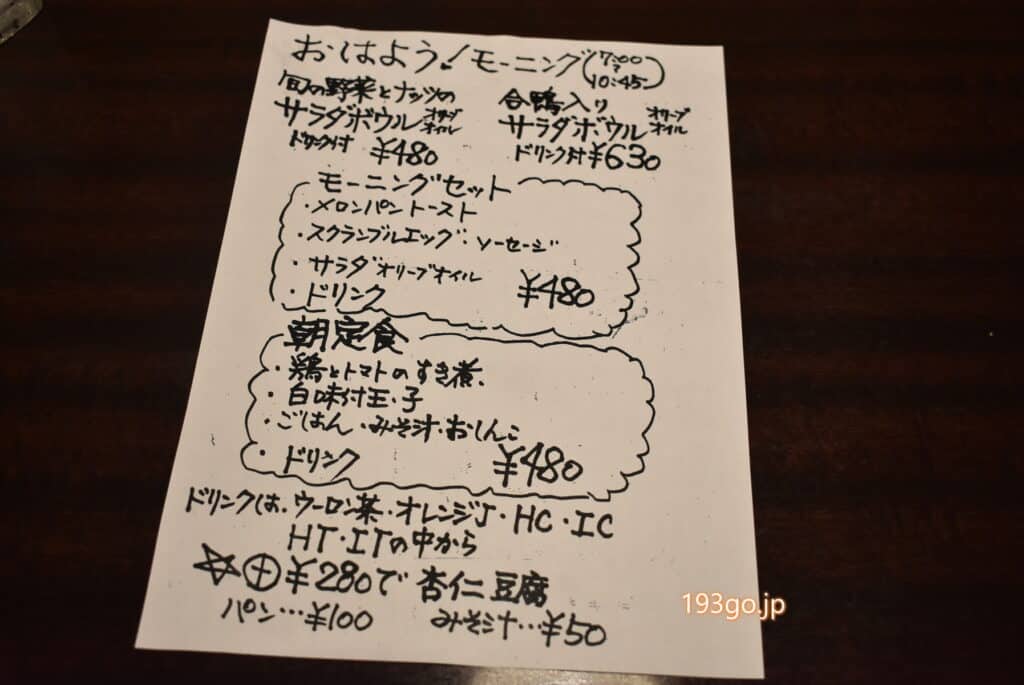 おはよう!モーニング(7:00~10:45)
旬の野菜とナッツの
サラダボウル オリーブオイル
ドリンク付 ¥480
合鴨入り
サラダボウル オリーブオイル
ドリンク付 ¥630
モーニングセット
・メロンパントースト
・スクランブルエッグ・ソーセージ
・サラダ オリーブオイル
・ドリンク ¥480
朝定食
・鶏とトマトのすき煮
・白味付玉・子
・ごはん・みそ汁・おしんこ
・ドリンク ¥480
ドリンクは、ウーロン茶・オレンジJ・HC・IC
HT・ITの中から
☆⊕¥280で 杏仁豆腐
パン…¥100 みそ汁…¥50
193go.jp